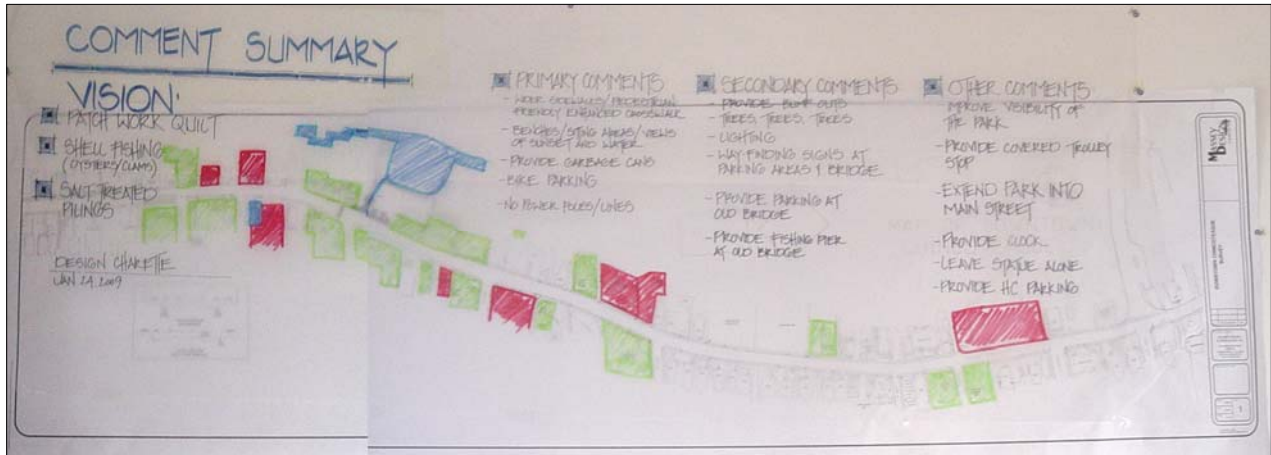 COMMENT SUMMARY
VISION:
PATCH WORK QUILT
SHELL FISHING
(OYSTERS/CLAMS)
SALT TREATED
PILINGS
DESIGN CHARETTE
JAN 24 2009
PRIMARY COMMENTS
- WIDER SIDEWALKS/PEDESTRIAN
FRIENDLY ENHANCED CROSSWALK
- BENCHES/SITING AREAS/VIEWS
OF SUNSET AND WATER
- PROVIDE GARBAGE CANS
- BIKE PARKING
- NO POWER POLES/LINES
SECONDARY COMMENTS
- PROVIDE BUMP OUTS
- TREES, TREES, TREES
- LIGHTING
- WAY FINDING SIGNS AT
PARKING AREAS & BRIDGE
- PROVIDE PARKING AT
OLD BRIDGE
- PROVIDE FISHING PIER
AT OLD BRIDGE
OTHER COMMENTS
IMPROVE VISIBILITY OF
THE PARK
- PROVIDE COVERED TROLLEY
STOP
- EXTEND PARK INTO
MAIN STREET
- PROVIDE CLOCK
- LEAVE STATUE ALONE
- PROVIDE HC PARKING